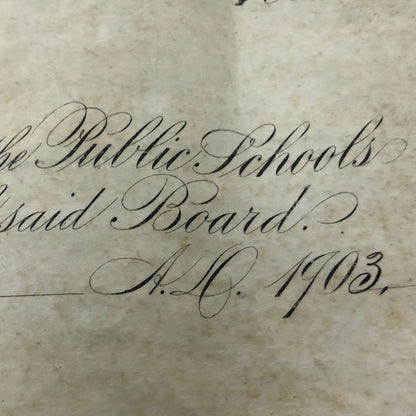 he Public Schools
said Board.
A.D. 1903.